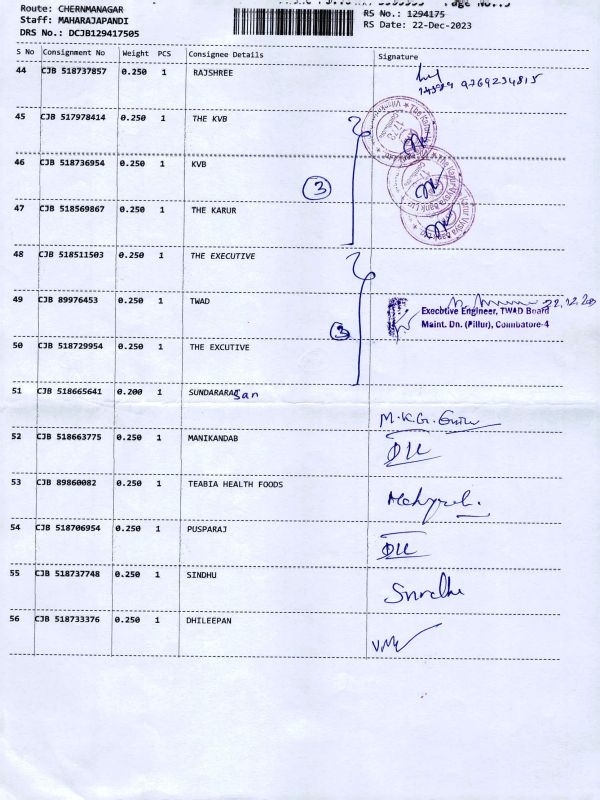 Route: CHERNMANAGAR
Staff: MAHARAJAPANDI
DRS No.: DCJB129417505
RS No.: 1294175
RS Date: 22-Dec-2023
S No Consignment No Weight PCS Consignee Details Signature
44 CJB 518737857 0.250 1 RAJSHREE
9769234815
45 CJB 517978414 0.250 1 THE KVB
46 CJB 518736954 0.250 1 KVB
3
47 CJB 518569867 0.250 1 THE KARUR
48 CJB 518511503 0.250 1 THE EXECUTIVE
49 CJB 89976453 0.250 1 TWAD
Executive Engineer, TWAD Board
Maint. Dn. (Pillur), Coimbatore-4
3
50 CJB 518729954 0.250 1 THE EXCUTIVE
51 CJB 518665641 0.200 1 SUNDARARAJ San
M.K.G.
52 CJB 518663775 0.250 1 MANIKANDAB
53 CJB 89860082 0.250 1 TEABIA HEALTH FOODS
54 CJB 518706954 0.250 1 PUSPARAJ
55 CJB 518737748 0.250 1 SINDHU
56 CJB 518733376 0.250 1 DHILEEPAN